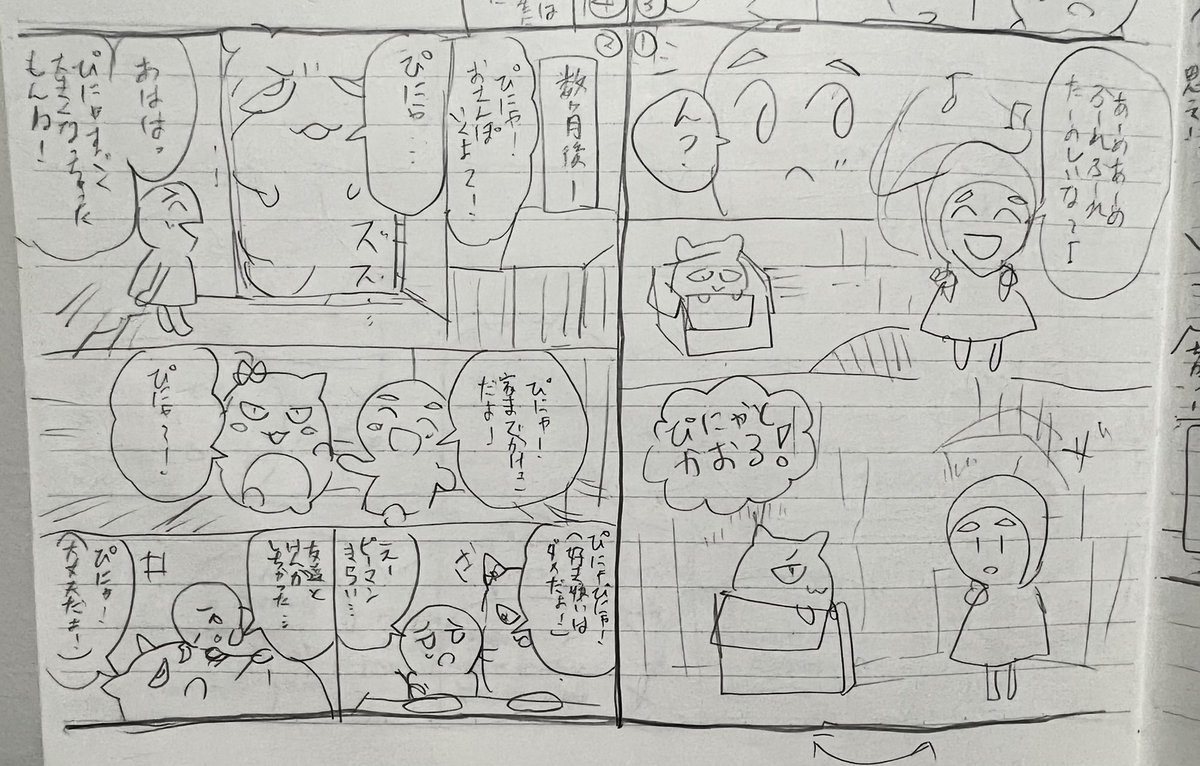 ①
あーめあーめ
ふーれふーれ
たーのしいな〜♪
んっ?
ぴにゃと
かおる!
ザ
②
数ヶ月後ー
ぴにゃ!
おさんぽ
いくよ〜!
ぴにゃ…
ズズ
あはっ
ぴにゃすごく
大きくなっちゃった
もんね!
ぴにゃ!
家までかけっこ
だよー!
ぴにゃ〜!
ぴにゃぴにゃ!
(好き嫌いは
ダメだよー!)
えー
ピーマン
きらい…
友達と
けんか
しちゃった…
ぴにゃ!
(大丈夫だよー!)
④
③